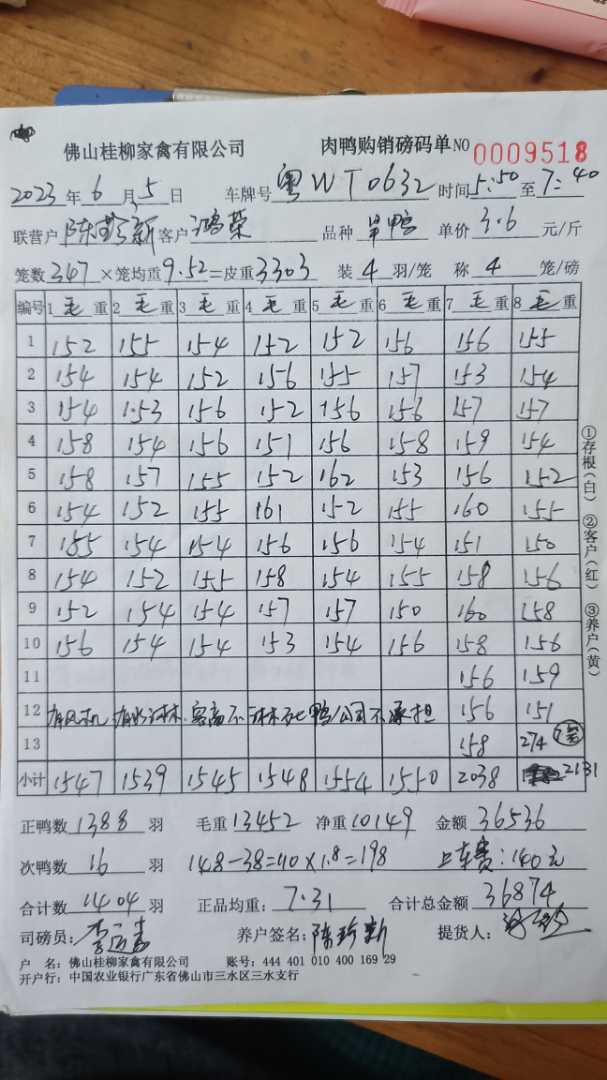 佛山桂柳家禽有限公司 肉鸭购销磅码单 NO 0009518
2023 年 6 月 5 日 车牌号 粤WT0632 时间 5:50 至 7:40
联营户 陈珍新 客户 鸿荣 品种 旱鸭 单价 3.6 元/斤
笼数 347 ×笼均重 9.52 =皮重 3303 装 4 羽/笼 称 4 笼/磅
编号 1 毛 重 2 毛 重 3 毛 重 4 毛 重 5 毛 重 6 毛 重 7 毛 重 8 毛 重
1 152 155 154 152 152 156 156 155
2 154 154 152 156 155 157 153 154
3 154 153 156 152 156 156 157 157
4 158 154 156 151 156 158 159 154
5 158 157 155 152 162 153 156 152
6 154 152 155 161 152 155 160 155
7 155 154 154 156 156 154 151 150
8 154 152 155 158 154 155 158 156
9 152 154 154 157 157 150 160 158
10 156 154 154 153 154 156 158 156
11 156 159
12 有风机 有水淋 客高不淋死鸭公司不承担 156 151
13 158 274 7笼
小计 1547 1539 1545 1548 1554 1550 2038 2131
正鸭数 1388 羽 毛重 13452 净重 10149 金额 36536
次鸭数 16 羽 148-38=110×1.8=198 上车费:140元
合计数 1404 羽 正品均重: 7.31 合计总金额 36874
司磅员: 养户签名: 陈珍新 提货人:
户 名: 佛山桂柳家禽有限公司 账号: 444 401 010 400 169 29
开户行: 中国农业银行广东省佛山市三水区三水支行
①存根(白) ②客户(红) ③养户(黄)